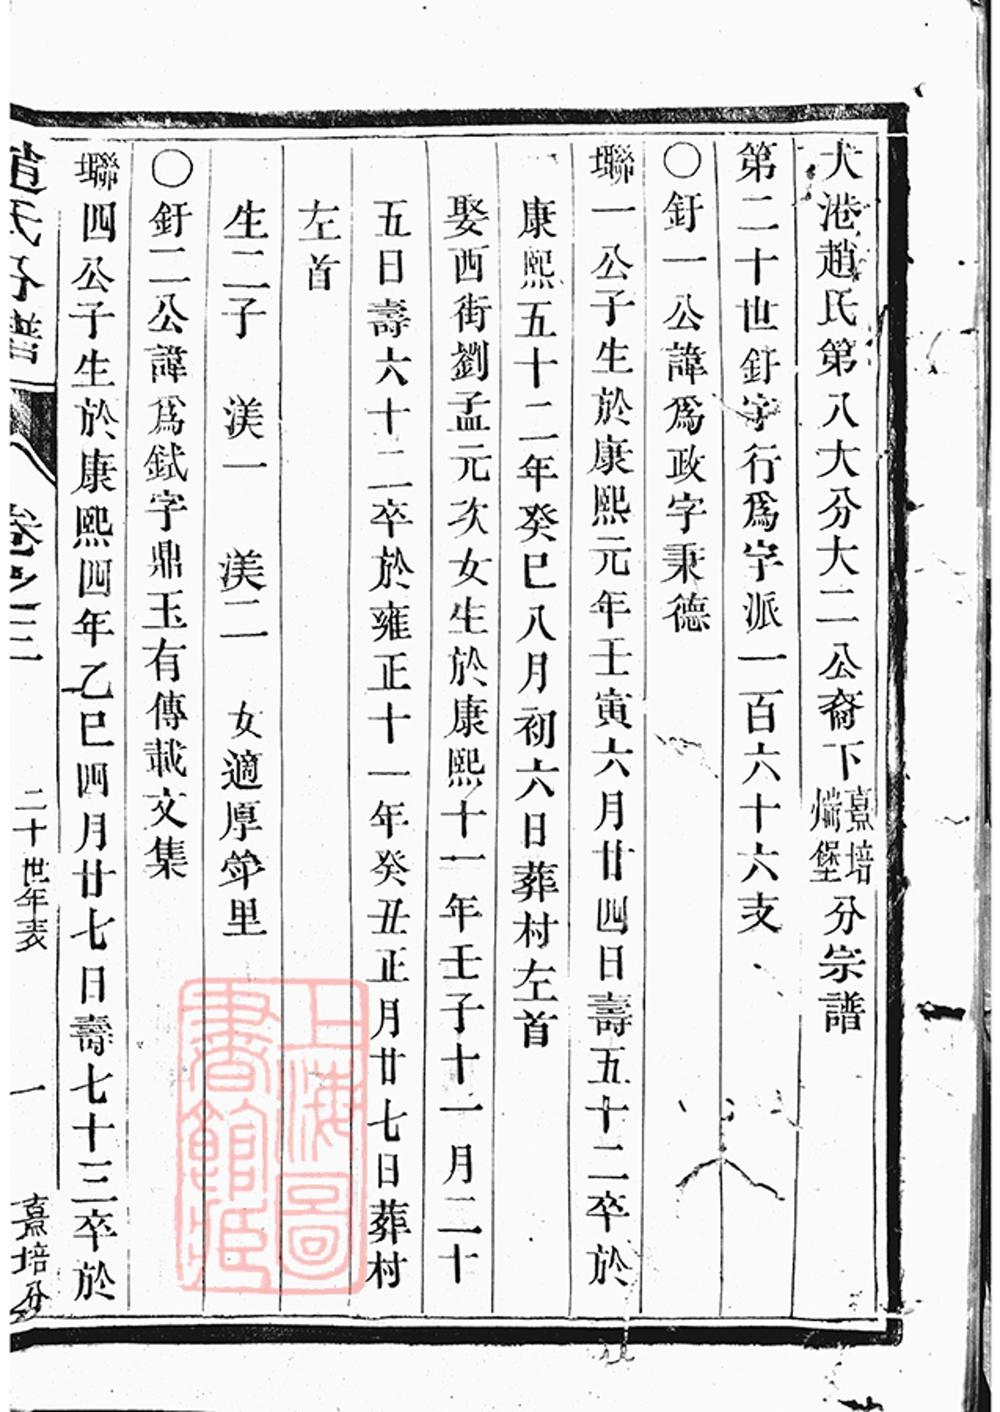 大港趙氏第八大分大二公裔下熹培煓堡分宗譜
第二十世釨字行為字派一百六十六支
○釨一公諱為政字秉德
聯一公子生於康熙元年壬寅六月廿四日壽五十二卒於
康熙五十二年癸巳八月初六日葬村左首
娶西街劉孟元次女生於康熙十一年壬子十一月二十
五日壽六十二卒於雍正十一年癸丑正月廿七日葬村
左首
生二子　渼一　渼二　女適厚筚里
○釨二公諱為鉽字鼎玉有傳載文集
聯四公子生於康熙四年乙巳四月廿七日壽七十三卒於
趙氏分譜　卷之三　二十世年表　一　熹培分
上海圖書館藏